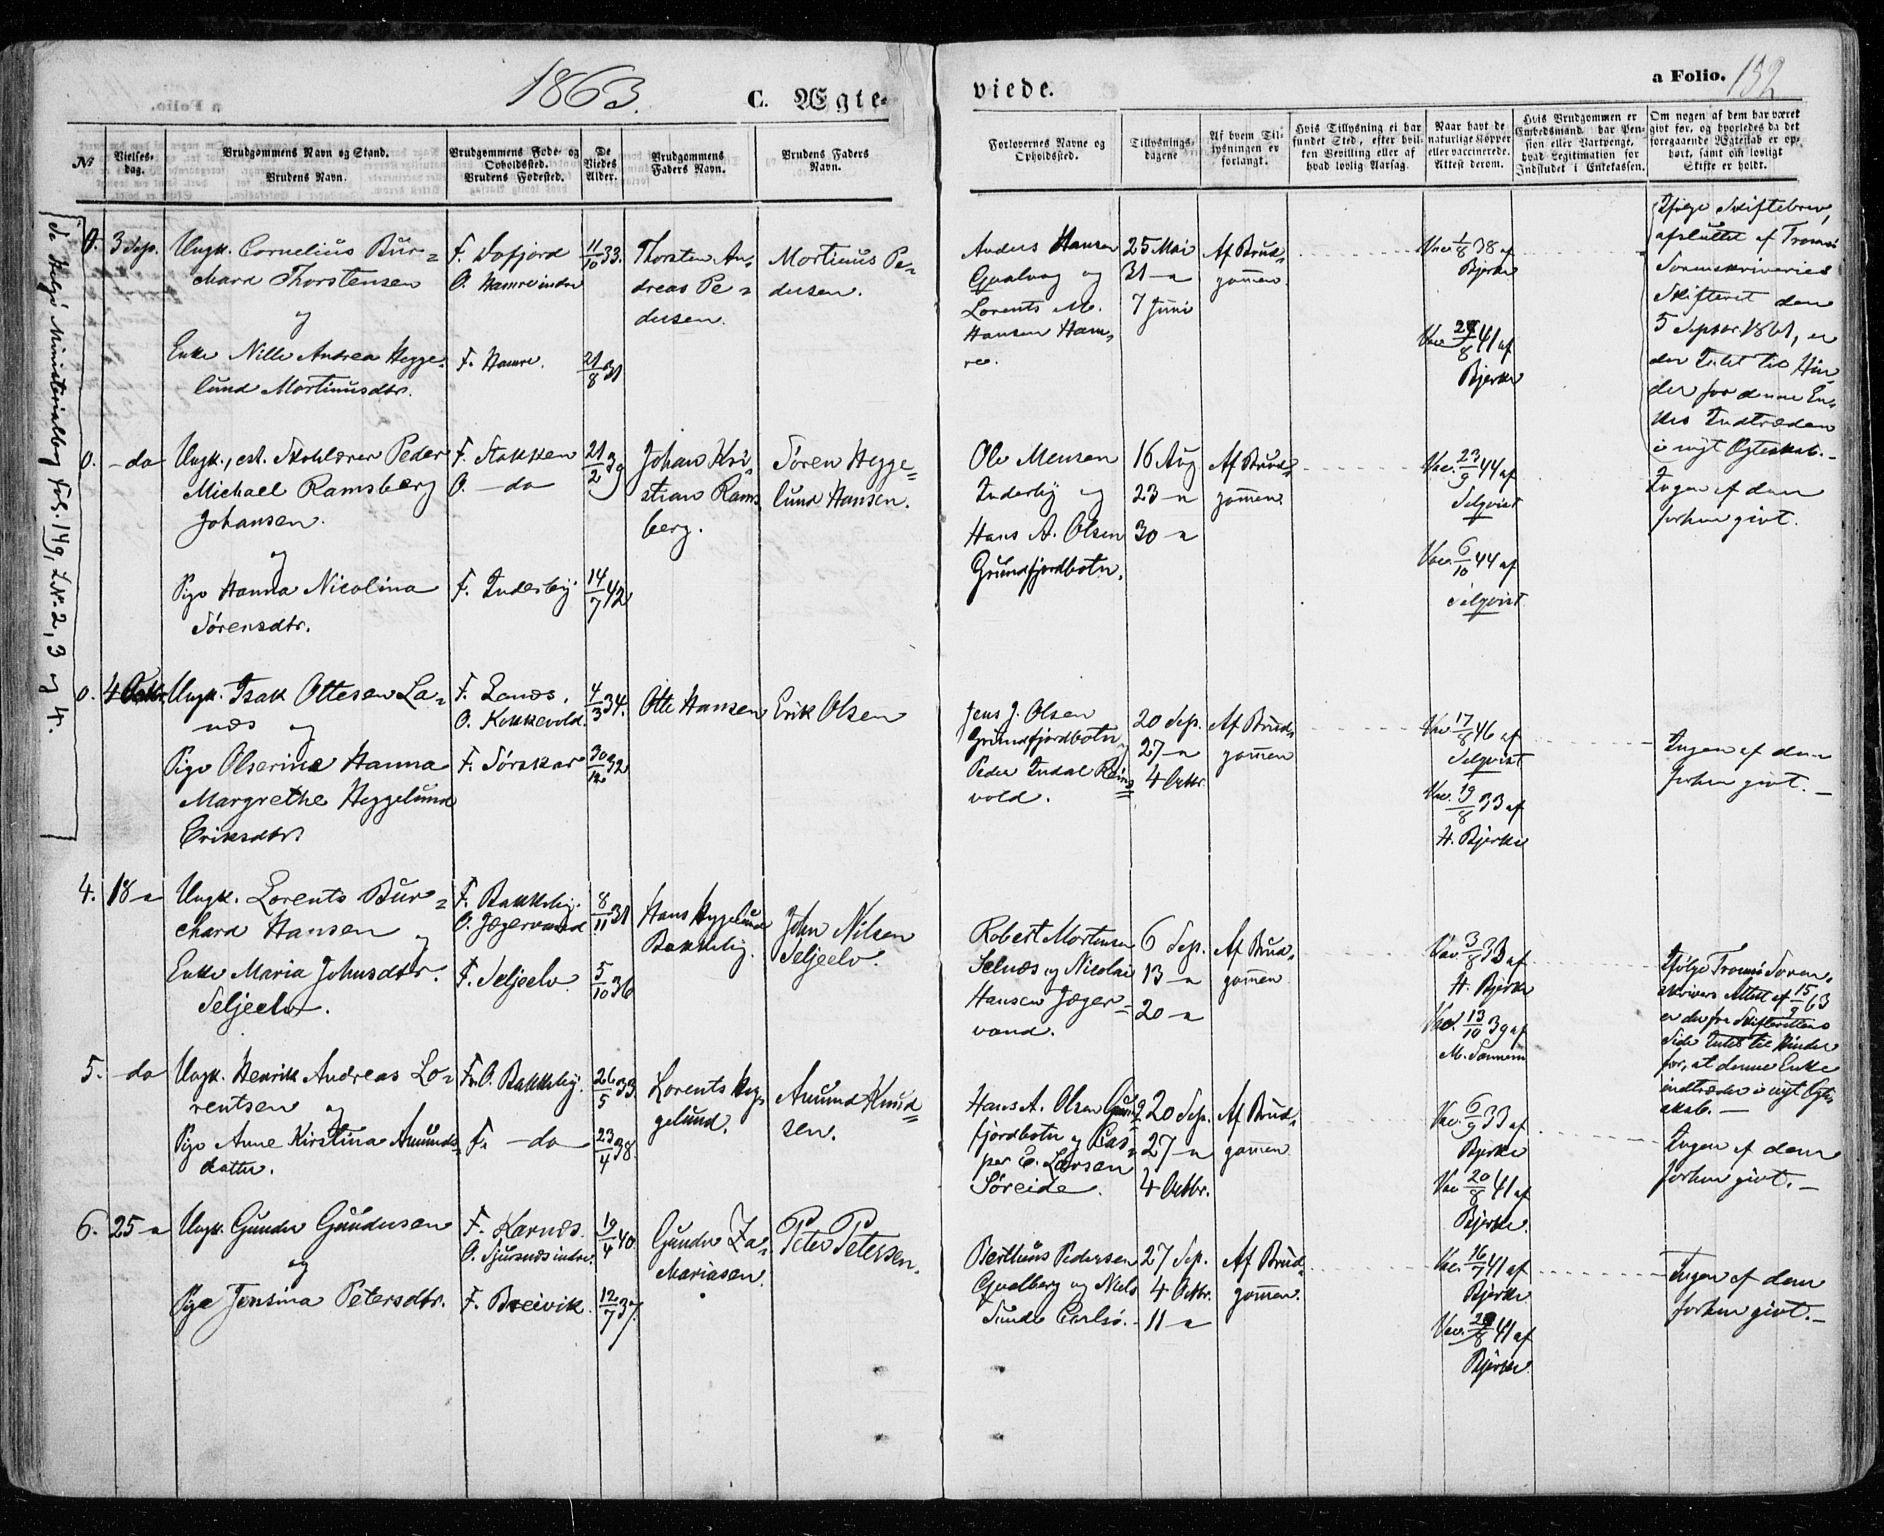 1863.
C. Ægte-
viede.
a Folio. 152
No
Vielses-
dag.
Brudgommens Navn og Stand.
Brudens Navn.
Brudgommens Føde- og
Opholdssted.
Brudens Fødested.
De
Viedes
Alder.
Brudgommens
Faders Navn.
Brudens Faders
Navn.
Forlovernes Navne og
Opholdssted.
Tillysnings-
dagene
Af hvem Til-
lysningen er
forlangt.
Hvis Tillysning ei har
fundet Sted, efter hvil-
ken Bevilling eller af
hvad lovlig Aarsag.
Naar havt de
naturlige Kopper
eller vaccinerede.
Attest derom.
Hvis Brudgommen er
Embedsmand, har Pen-
sion eller Vartpenge,
hvad Legitimation for
Indskudet i Enkekassen.
Om nogen af dem har været
givt før, og hvorledes da det
foregaaende Ægteskab er op-
hørt, samt om lovligt
Skifte er holdt.
Se Helgø Ministerialbog Fol. 149, LNr. 2, 3 og 4.
0. 3 Sep.
Ungk. Cornelius Bur-
chard Thorstensen
og
Enke Nille Andrea Hegge-
lund Mortinusdtr.
F. Dafjord
O. Hamre indre
F. Hamre.
11/10 33.
21/8 31
Thorsten An-
dreas Pe-
dersen.
Mortinus Pe-
dersen.
Anders Hansen
Gjøalvog og
Lorents M.
Hansen Ham-
re.
25 Mai
31 –
7 Juni
Af Brud-
gommen
Vac. 1/8 38 af
Bjerke
Vac. 29/8 41 af
Bjerke
Ifølge Skiftebrev,
afsluttet af Tromsø
Sorenskriveries
Skifteret den
5 Septbr. 1861, er
der Intet til Hin-
der for denne En-
kes Indtræden
i nyt Ægteskab. –
0. – do
Ungk., est. Skolelærer Peder
Michael Ramsberg
Johansen.
og
Pige Hanna Nicolina
Sørensdtr.
F. Stakken
O. – do
F. Inderby
21/2 39
14/7 42
Johan Kri-
stian Rams-
berg.
Søren Hegge-
lund Hansen.
Ole Mensen
Inderby og
Hans A. Olsen
Grundfjordbotn.
16 Aug
23 –
30 –
Af Brud-
gommen
Vac. 23/9 44 af
Selqvist
Vac. 6/10 44 af
Selqvist
Ingen af dem
forhen givt.
0. 4 Octbr.
Ungk. Isak Ottesen La-
næs og
Pige Olserine Hanna
Margrethe Heggelund
Eriksdtr.
F. Lanæs.
O. Kokkevold.
F. Sørskar
4/3 34.
30/12 32
Otte Hansen
Erik Olsen
Jens J. Olsen
Grundfjordbotn og
Peder Indal Reins-
vold.
20 Sep.
27 –
4 Octbr.
Af Brud-
gommen
Vac 17/8 46 af
Selqvist
Vac. 19/8 33 af
H. Bjerke
Ingen af dem
forhen givt. –
4. 18 –
Ungk. Lorents Bur-
chard Hansen og
Enke Maria Johnsdtr.
Seljeelv.
F. Bakkeby.
O. Jægervand
F. Seljeelv.
8/11 31
5/10 36
Hans Heggelund
Bakkeby.
John Nilsen
Seljeelv.
Robert Mortensen
Selnæs og Nicolai
Hansen Jæger-
vand.
6 Sep.
13 –
20 –
Af Brud-
gommen
Vac 3/8 33 af
H. Bjerke
Vac. 13/10 39 af
Ifølge Tromsø Soren-
skrivers Attest af 15/9 63
er der fra Skifterettens
Side Intet til Hinder
for, at denne Enke
indtræder i nyt Ægte-
skab. –
5. – do
Ungk. Henrik Andreas Lo-
rentsen og
Pige Anne Kirstina Amunds-
datter.
F. O. Bakkeby.
F. – do
26/5 33
23/4 38.
Lorents Heg-
gelund.
Amund Knud-
sen.
Hans A. Olsen Grund-
fjordbotn og Cas-
per E. Larsen
Søreide.
20 Sep.
27 –
4 Octbr.
Af Brud-
gommen
Vac. 6/9 33 af
Bjerke
Vac 20/8 41 af
Bjerke.
Ingen af dem
forhen givt. –
6. 25 –
Ungk. Gunder Gundersen
og
Pige Jensina Petersdtr.
F. Karnæs.
O. Sjursnæs indre.
F. Breivik.
19/4 40.
12/7 37.
Gunder Za-
Mariasen.
Peter Petersen.
Bertheus Pedersen
Gvalberg og Niels
Sunde Carlsø.
27 Sep.
4 Octbr.
11 –
Af Brud-
gommen.
Vac. 16/7 41 af
Bjerke.
Vac. 29/8 41 af
Bjerke
Ingen af dem
forhen givt. –